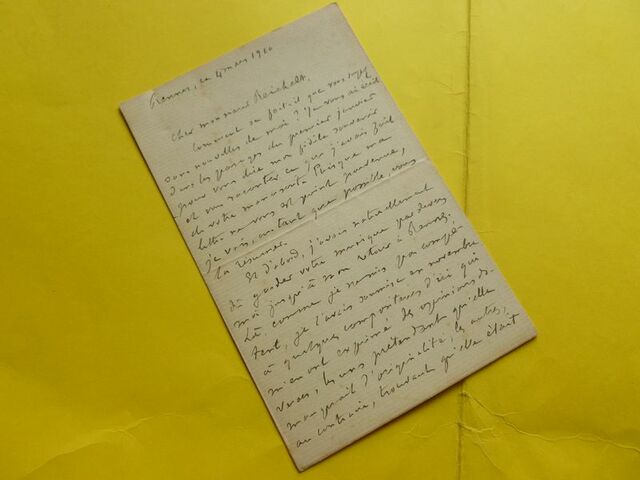 Rennes, ce 4 mars 1910
Cher monsieur Reichelt,
Comment se fait-il que vous soyez
sans nouvelles de moi ? Je vous ai écrit
dans les parages du premier janvier
pour vous dire mon fidèle souvenir
et vous raconter ce que j'avais fait
de votre manuscrit. Puisque ma
lettre ne vous est point parvenue,
je vais, autant que possible, vous
la résumer.
Et d'abord, j'avais naturellement
dû garder votre musique par devers
moi jusqu'à mon retour à Rennes.
Là, comme je n'ai pas
je l'avais soumise en novembre
à quelques compositeurs d'ici qui
m'en ont exprimé des opinions di-
verses, les uns prétendant qu'elle
manquait d'originalité, les autres,
au contraire, trouvant qu'elle était